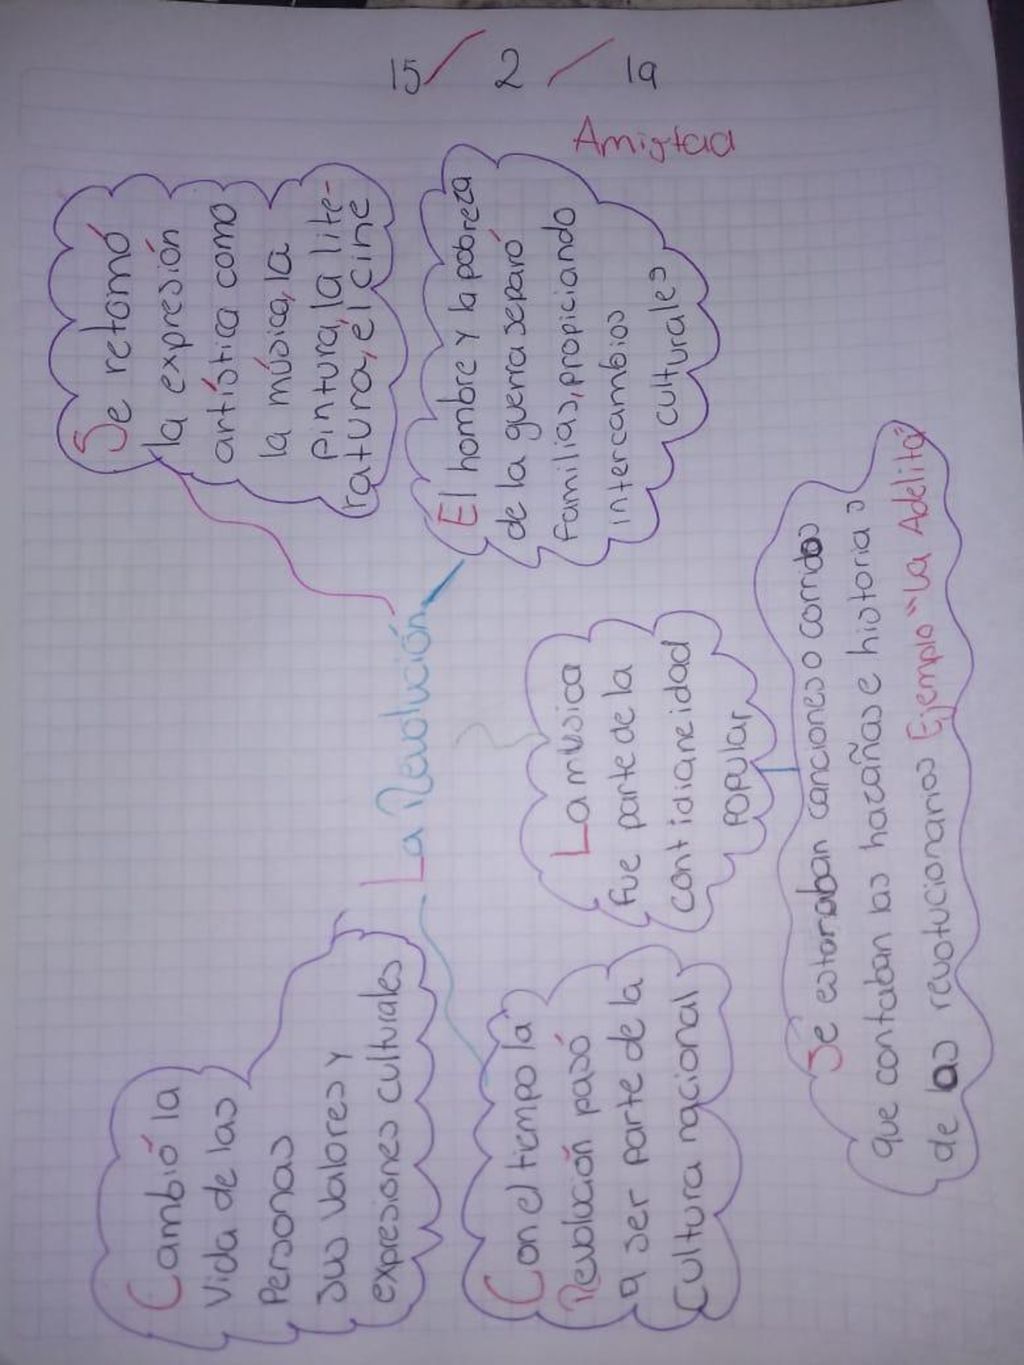 15/2/19
Amistad
La Revolución
Cambió la
Vida de las
Personas
sus valores y
expresiones culturales
Se retomó
la expresión
artística como
la música, la
pintura, la lite-
ratura, el cine
Con el tiempo la
Revolución pasó
a ser parte de la
Cultura nacional
La música
fue parte de la
contidianeidad
popular
El hombre y la pobreza
de la guerra separó
familias, propiciando
intercambios
culturales
Se estoraban canciones o corridos
que contaban las hazañas e historias
de las revolucionarios Ejemplo "La Adelita"